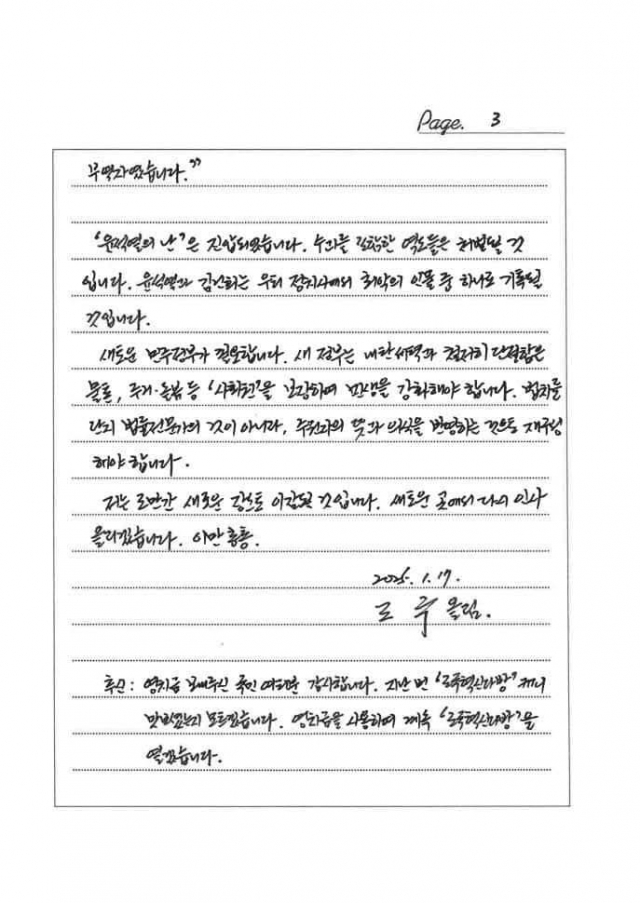 Page. 3
무뢰자였습니다."
'윤석열의 난'은 진압되었습니다. 수괴를 포함한 역도들은 처벌될 것
입니다. 윤석열과 김건희는 우리 정치사에서 최악의 인물 중 하나로 기록될
것입니다.
새로운 민주정부가 필요합니다. 새 정부는 내란세력과 철저히 단절함은
물론, 주거·돌봄 등 '사회권'을 보장하여 민생을 강화해야 합니다. 법치를
단지 법률전문가의 것이 아니라, 주권자의 뜻과 의식을 반영하는 것으로 재구성
해야 합니다.
저는 조만간 새로운 장소로 이감될 것입니다. 새로운 곳에서 다시 인사
올리겠습니다. 이만 총총.
2025. 1. 17.
조 국 올림.
후신: 영치금 보내주신 국민 여러분 감사합니다. 지난 번 '조국혁신다방' 커피
맛있었는지 모르겠습니다. 영치금을 사용하여 계속 '조국혁신다방'을
열겠습니다.